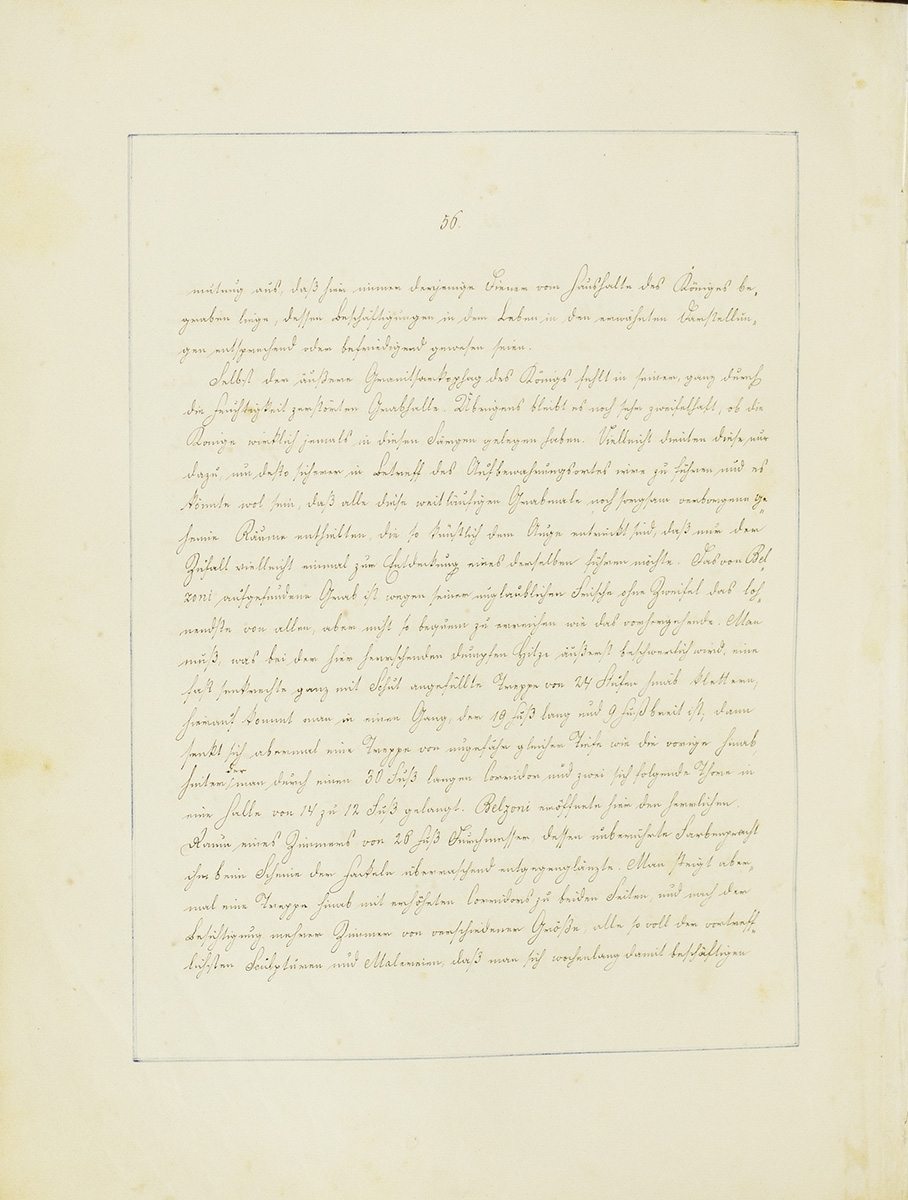 56.
mutung aus, daß hier immer derjenige Diener vom Haushalte des Königes be-
graben liege, dessen Beschäftigungen in dem Leben in den erwähnten Darstellun-
gen entsprechend oder befriedigend gewesen seien.
Selbst der äußere Granitsarkophag des Königs fehlt in seiner, ganz durch
die Feuchtigkeit zerstörten Grabhalle. Übrigens bleibt es noch sehr zweifelhaft, ob die
Könige wirklich jemals in diesen Särgen gelegen haben. Vielleicht dienten diese nur
dazu, um desto sicherer in Betreff des Aufbewahrungsortes irre zu führen und es
könnte wol sein, daß alle diese weitläufigen Grabmale noch sorgsam verborgene ge-
heime Räume enthielten, die so künstlich dem Auge entrückt sind, daß nur der
Zufall vielleicht einmal zur Entdeckung eines derselben führen möchte. Das von Bel-
zoni aufgefundene Grab ist wegen seiner unglaublichen Frische ohne Zweifel das loh-
nendste von allen, aber nicht so bequem zu erreichen wie das vorhergehende. Man
muß, was bei der hier herrschenden dumpfen Hitze äußerst beschwerlich wird, eine
fast senkrechte ganz mit Schut angefüllte Treppe von 24 Stufen hinab klettern,
hierauf kommt man in einen Gang, der 19 Fuß lang und 9 Fuß breit ist; dann
senkt sich abermal eine Treppe von ungefähr gleicher Tiefe wie die vorige hinab
hinter der man durch einen 30 Fuß langen Corridor und zwei sich folgende Thore in
eine Halle von 14 zu 12 Fuß gelangt. Belzoni eröffnete hier den herrlichen
Raum eines Zimmers von 26 Fuß Durchmesser, dessen unberührte Farbenpracht
ihm beim Scheine der Fackeln überraschend entgegenglänzte. Man steigt aber-
mal eine Treppe hinab mit erhöheten Corridors zu beiden Seiten, und nach der
Besichtigung mehrer Zimmer von verschiedener Größe, alle so voll der vortreff-
lichsten Sculpturen und Malereien, daß man sich wochenlang damit beschäftigen